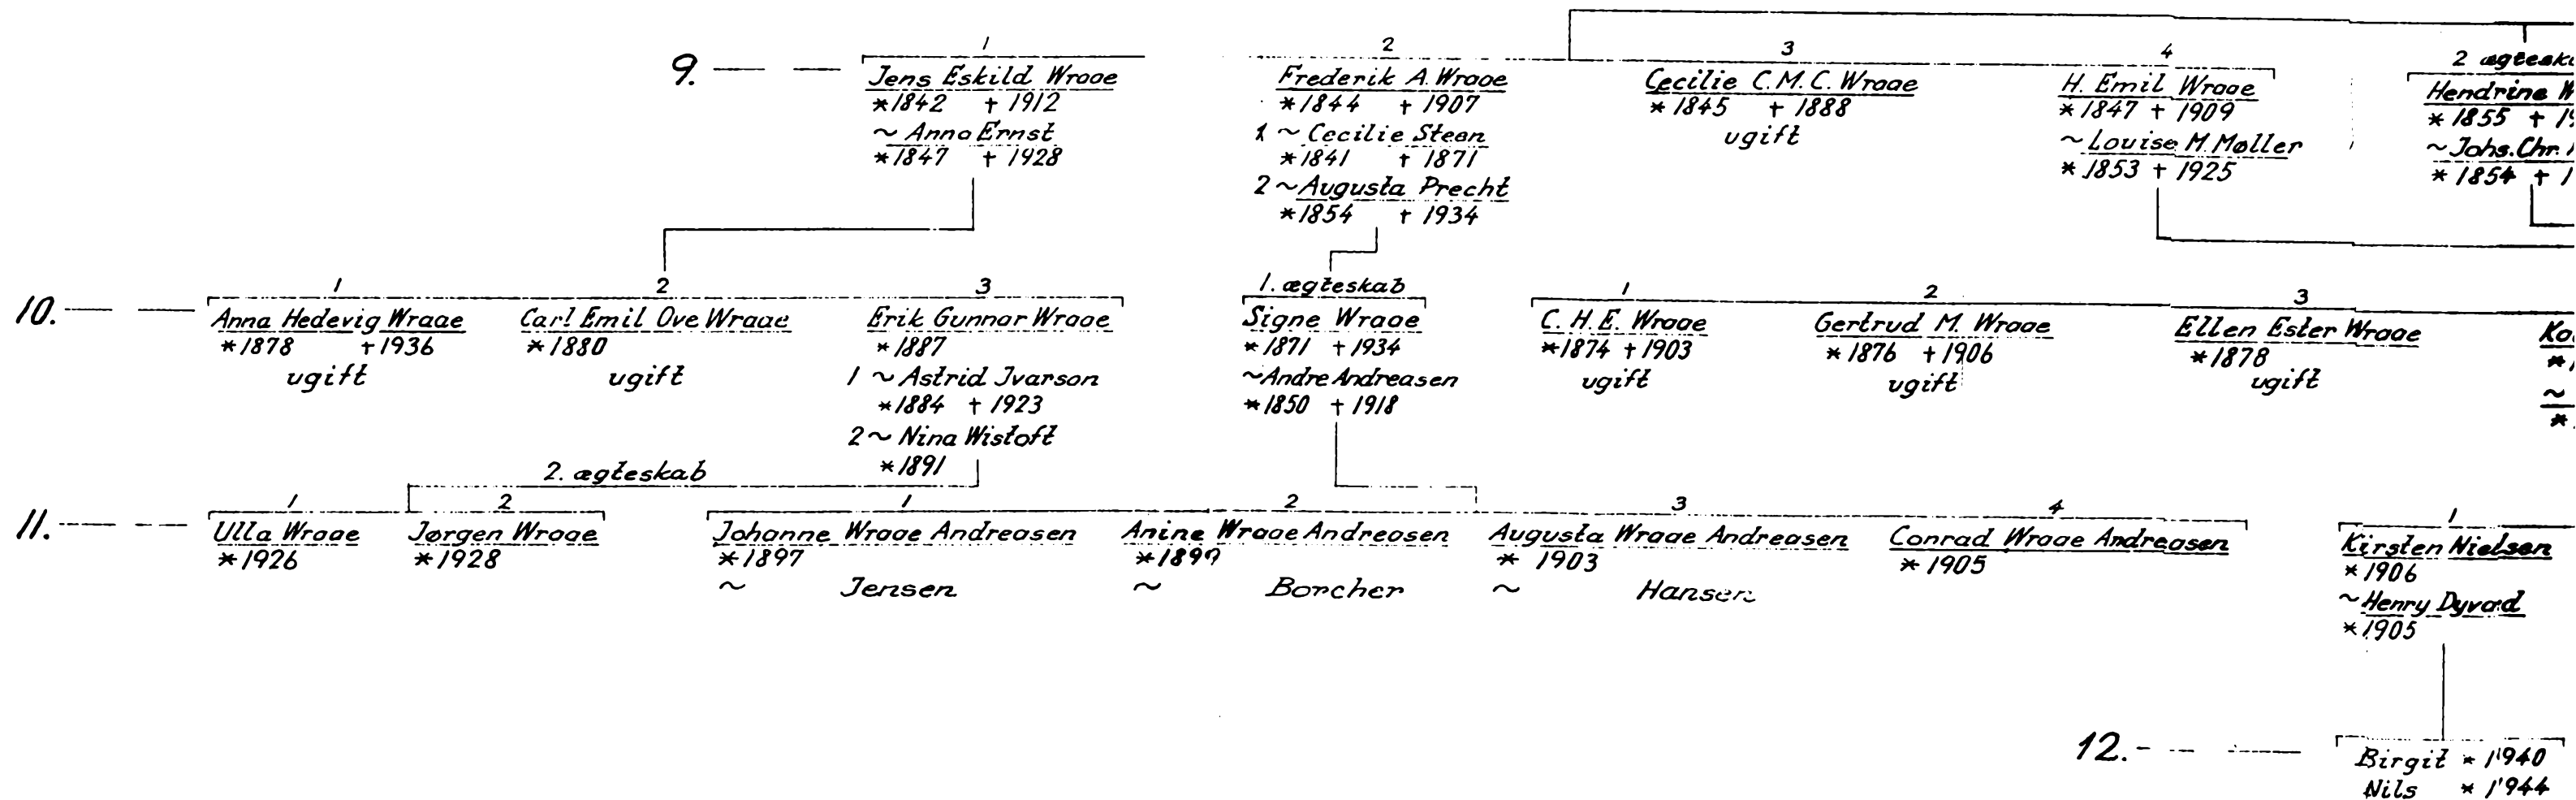 9.
1
Jens Eskild Wraae
*1842 + 1912
~ Anna Ernst
*1847 + 1928
2
Frederik A. Wraae
*1844 + 1907
1 ~ Cecilie Steen
*1841 + 1871
2 ~ Augusta Precht
*1854 + 1934
3
Cecilie C.M.C. Wraae
*1845 + 1888
ugift
4
H. Emil Wraae
*1847 + 1909
~ Louise M. Møller
*1853 + 1925
2 ægteska
Hendrine W
*1855 + 19
~ Johs. Chr.
*1854 + 1
10.
1
Anna Hedevig Wraae
*1878 +1936
ugift
2
Carl Emil Ove Wraae
*1880
ugift
3
Erik Gunnar Wraae
*1887
1 ~ Astrid Ivarson
*1884 + 1923
2 ~ Nina Wistoft
*1891
1. ægteskab
Signe Wraae
*1871 +1934
~Andre Andreasen
*1850 +1918
1
C.H.E. Wraae
*1874 +1903
ugift
2
Gertrud M. Wraae
*1876 +1906
ugift
3
Ellen Ester Wraae
*1878
ugift
11.
2. ægteskab
1
Ulla Wraae
*1926
2
Jørgen Wraae
*1928
1
Johanne Wraae Andreasen
*1897
~ Jensen
2
Anine Wraae Andreasen
*1899
~ Borcher
3
Augusta Wraae Andreasen
*1903
~ Hansen
4
Conrad Wraae Andreasen
*1905
1
Kirsten Nielsen
*1906
~ Henry Dyvad
*1905
12.
Birgit *1940
Nils *1944